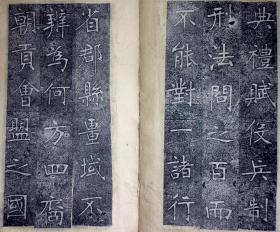 典禮賦役兵制
刑法問之百而
不能對一諸行
省郡縣畺域不
辨為何方四裔
朝貢會盟之國